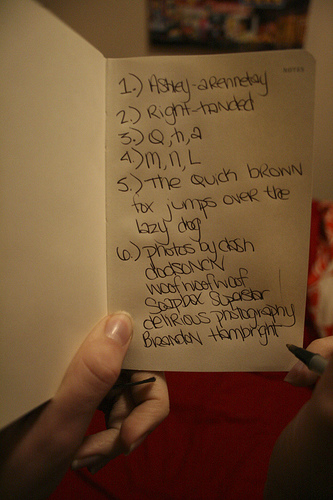 NOTES
1.) Ashley-arennetay
2.) Right-handed
3.) Q, h, a
4.) m, n, L
5.) The quick brown
fox jumps over the
lazy dog
6.) photos by dash
dodsonck
woof woof woof
Soapbox Superstar
delirious photography
Brandon Hambright